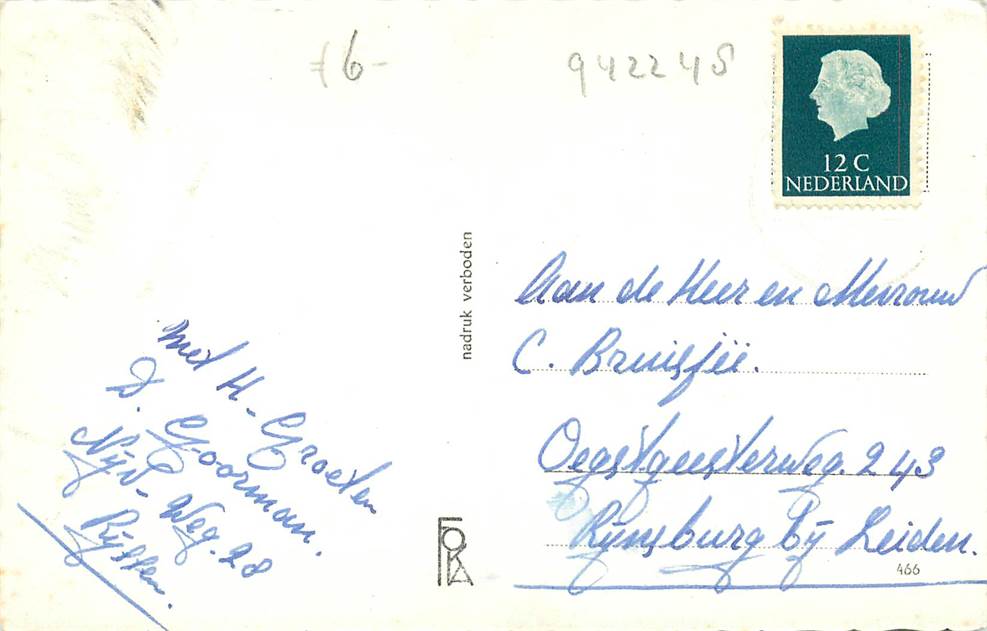 f 6-
942245
12 C
NEDERLAND
nadruk verboden
Aan de Heer en Mevrouw
C. Bruisjië.
Oegstgeesterweg. 243
Rijnsburg bij Leiden.
466
Met H- Groeten
D. Goorman.
Nijv- Weg. 28
Rijssen.
FOKA